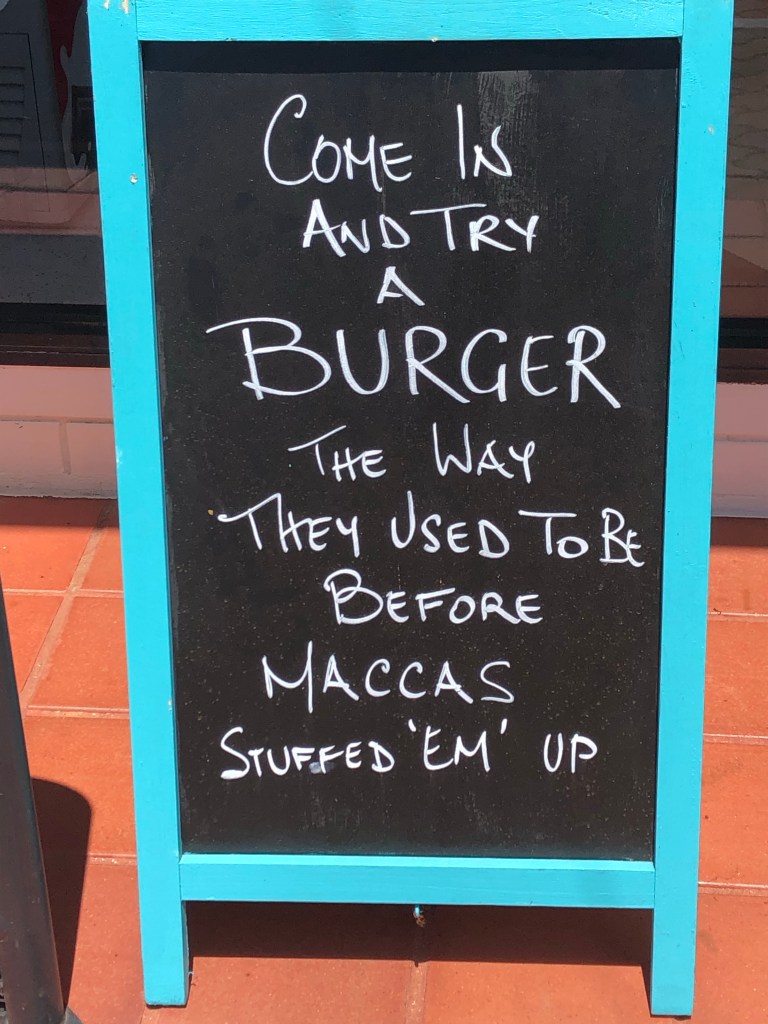 Come In
And Try
A
BURGER
The Way
They Used To Be
Before
Maccas
Stuffed 'Em' Up